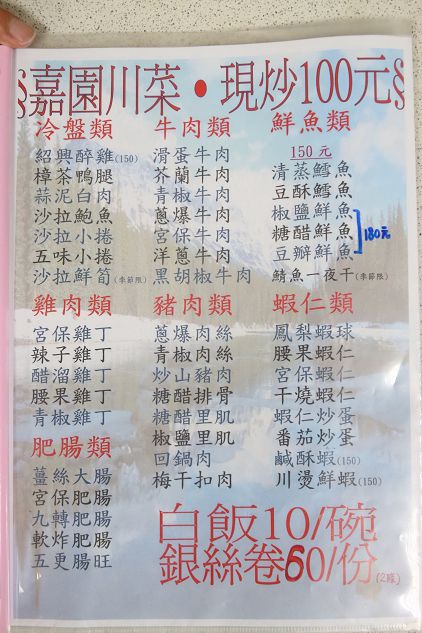 §嘉園川菜•現炒100元§
冷盤類
紹興醉雞(150)
樟茶鴨腿
蒜泥白肉
沙拉鮑魚
沙拉小捲
五味小捲
沙拉鮮筍(季節限)
牛肉類
滑蛋牛肉
芥蘭牛肉
青椒牛肉
蔥爆牛肉
宮保牛肉
洋蔥牛肉
黑胡椒牛肉
鮮魚類
150元
清蒸鱈魚
豆酥鱈魚
椒鹽鮮魚
糖醋鮮魚
豆瓣鮮魚
180元
鯖魚一夜干(季節限)
雞肉類
宮保雞丁
辣子雞丁
醋溜雞丁
腰果雞丁
青椒雞丁
豬肉類
蔥爆肉絲
青椒肉絲
炒山豬肉
糖醋排骨
糖醋里肌
椒鹽里肌
回鍋肉
梅干扣肉
蝦仁類
鳳梨蝦球
腰果蝦仁
宮保蝦仁
干燒蝦仁
蝦仁炒蛋
番茄炒蛋
鹹酥蝦(150)
川燙鮮蝦(150)
肥腸類
薑絲大腸
宮保肥腸
九轉肥腸
軟炸肥腸
五更腸旺
白飯10/碗
銀絲卷60/份(2條)